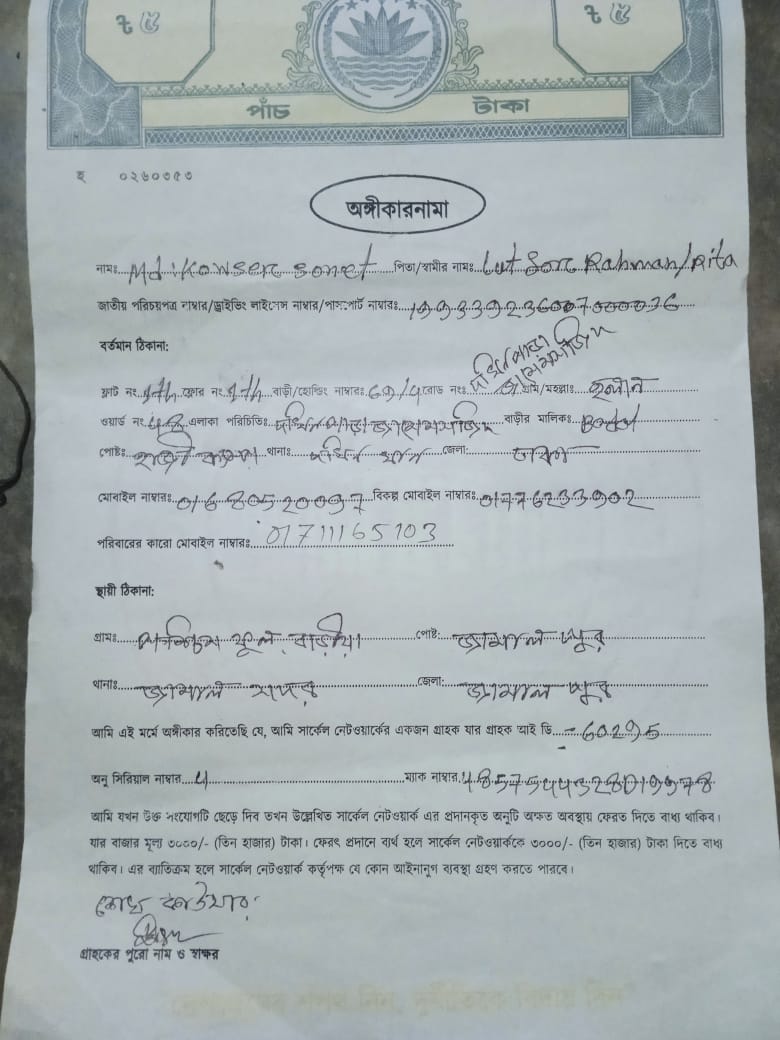 ৳ ৫ ৳ ৫
পাঁচ টাকা
হ ০২৬০৩৫৩
অঙ্গীকারনামা
নামঃ Md: Kowser sonet পিতা/স্বামীর নামঃ Lut Sor Rahman/Rita
জাতীয় পরিচয়পত্র নাম্বার/ড্রাইভিং লাইসেন্স নাম্বার/পাসপোর্ট নাম্বারঃ
বর্তমান ঠিকানা:
দক্ষিন পাড়া
জামে মসজিদ
ফ্লাট নং 4th ফ্লোর নং 4th বাড়ী/হোল্ডিং নাম্বারঃ রোড নং গ্রাম/মহল্লাঃ
ওয়ার্ড নং এলাকা পরিচিতিঃ দক্ষিন পাড়া জামে মসজিদ বাড়ীর মালিকঃ
পোষ্টঃ থানাঃ দক্ষিন খান জেলা: ঢাকা
মোবাইল নাম্বারঃ বিকল্প মোবাইল নাম্বারঃ
পরিবারের কারো মোবাইল নাম্বারঃ 01711165103
স্থায়ী ঠিকানা:
গ্রামঃ পশ্চিম ফুল বাড়ীয়া পোষ্ট: জামাল পুর
থানাঃ জামাল সদর জেলা: জামাল পুর
আমি এই মর্মে অঙ্গীকার করিতেছি যে, আমি সার্কেল নেটওয়ার্কের একজন গ্রাহক যার গ্রাহক আই ডি - 60295
অনু সিরিয়াল নাম্বার 4 ম্যাক নাম্বার
আমি যখন উক্ত সংযোগটি ছেড়ে দিব তখন উল্লেখিত সার্কেল নেটওয়ার্ক এর প্রদানকৃত অনুটি অক্ষত অবস্থায় ফেরত দিতে বাধ্য থাকিব।
যার বাজার মূল্য ৩০০০/- (তিন হাজার) টাকা। ফেরৎ প্রদানে ব্যর্থ হলে সার্কেল নেটওয়ার্ককে ৩০০০/- (তিন হাজার) টাকা দিতে বাধ্য
থাকিব। এর ব্যতিক্রম হলে সার্কেল নেটওয়ার্ক কর্তৃপক্ষ যে কোন আইনানুগ ব্যবস্থা গ্রহণ করতে পারবে।
গ্রাহকের পুরো নাম ও স্বাক্ষর